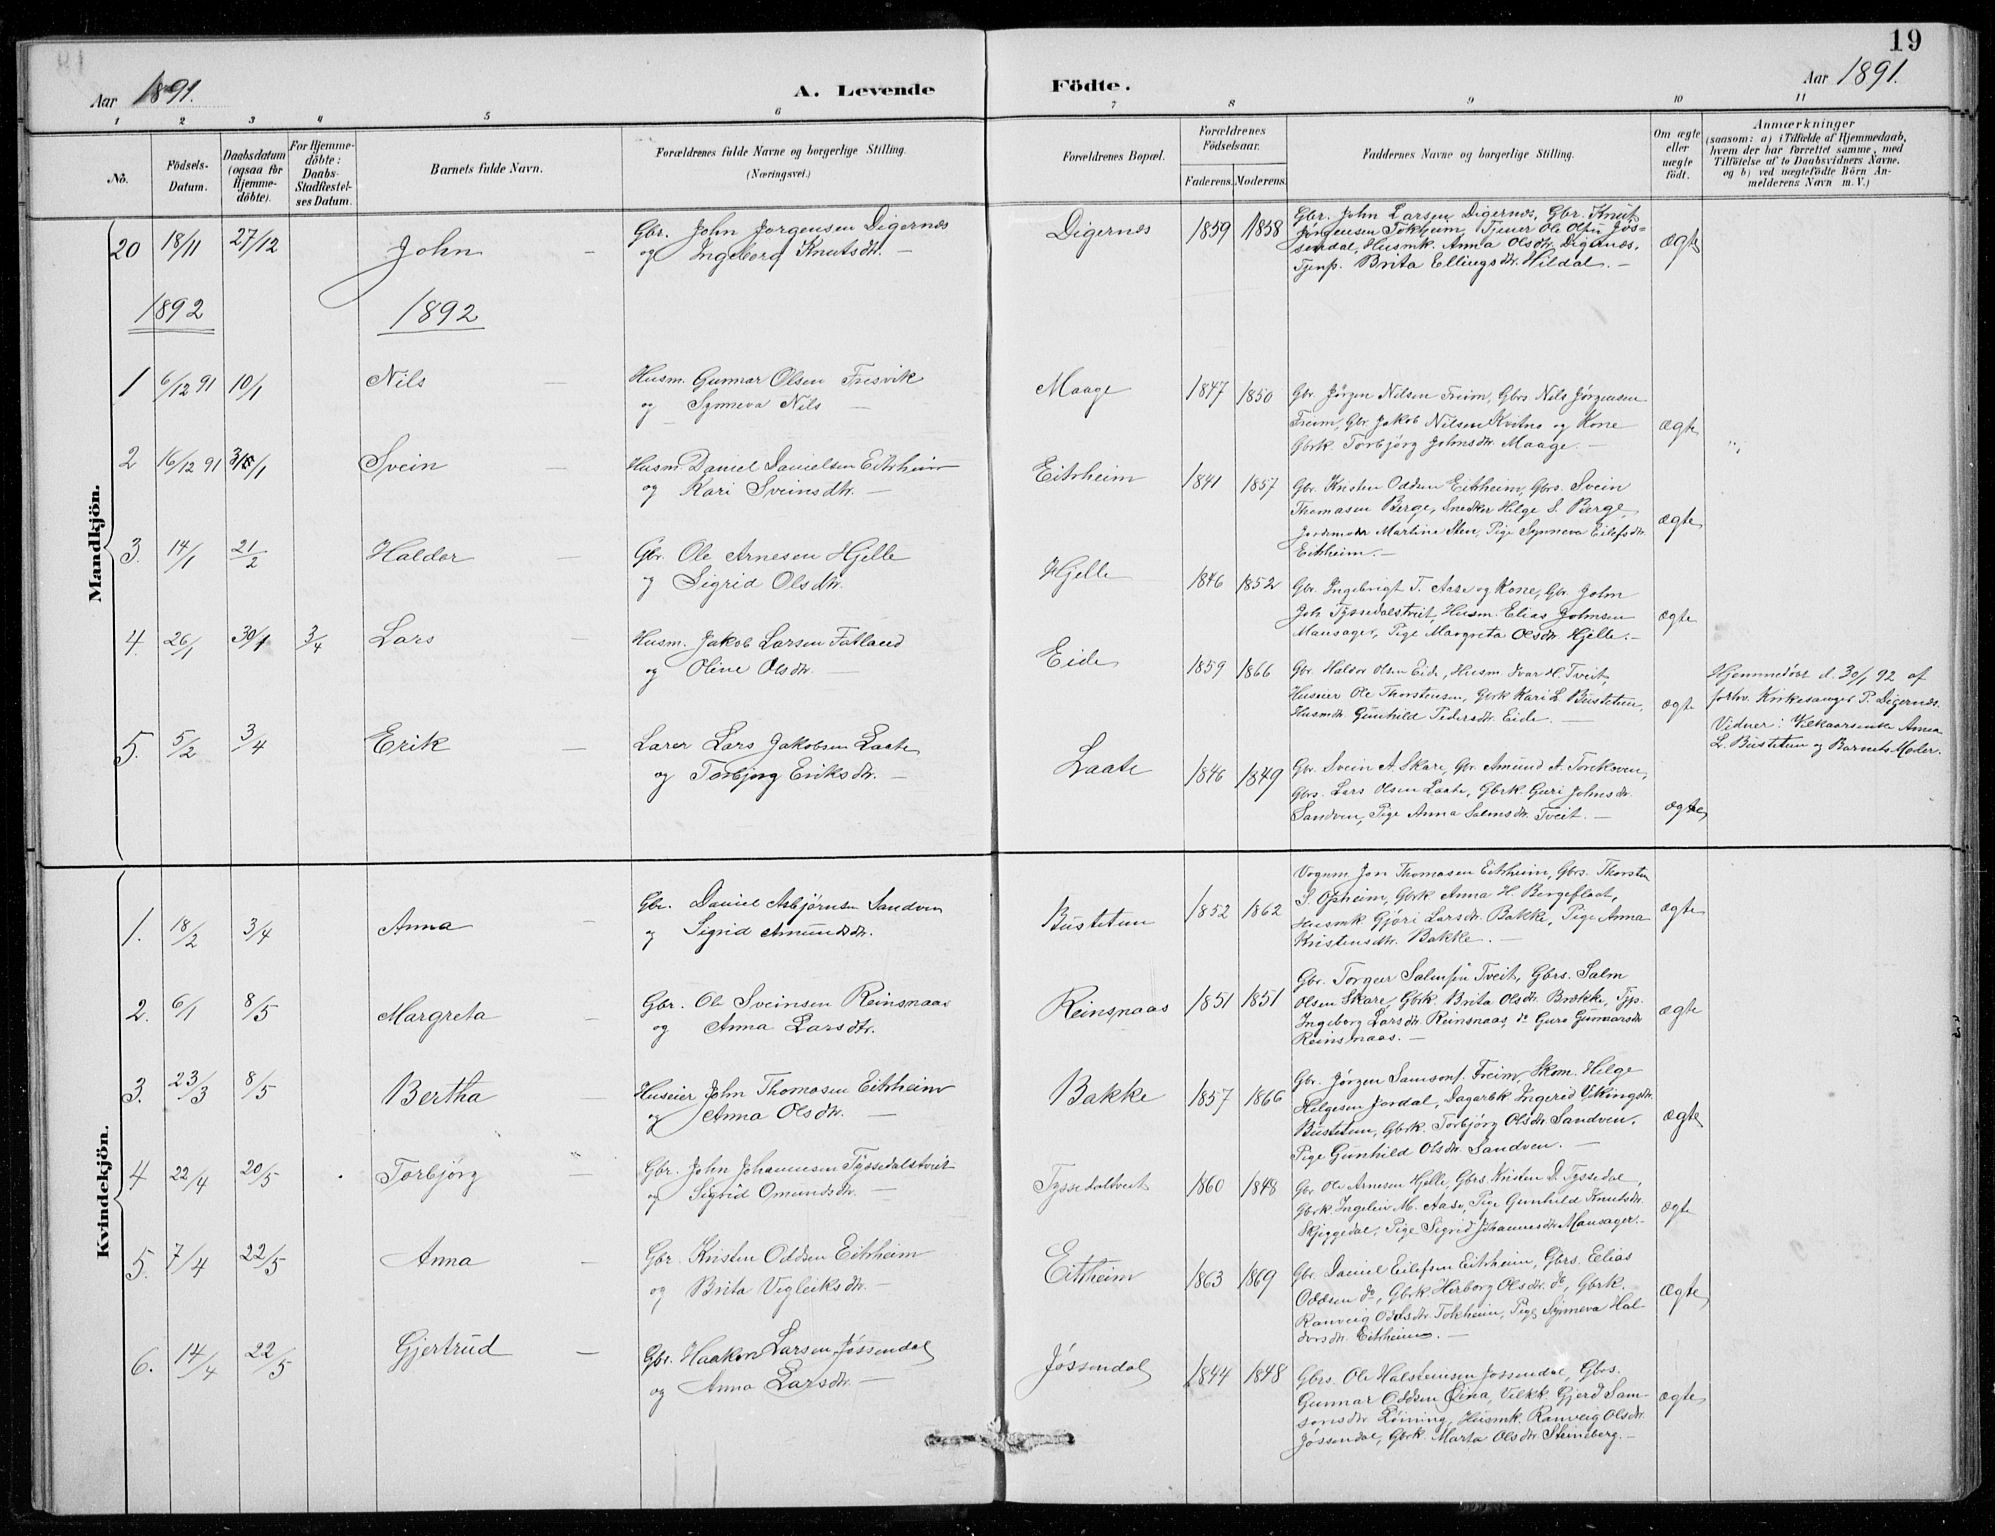 19
Aar 1891.
A. Levende
Födte.
Aar 1891.
1 2 3 4 5 6 7 8 9 10 11
No.
Födsels-
Datum.
Daabsdatum
(ogsaa for
Hjemme-
döbte).
For Hjemme-
döbte:
Daabs-
Stadfæstel-
ses Datum.
Barnets fulde Navn.
Forældrenes fulde Navne og borgerlige Stilling.
(Næringsvei.)
Forældrenes Bopæl.
Forældrenes
Födselsaar.
Faderens. Moderens.
Faddernes Navne og borgerlige Stilling.
Om ægte
eller
uægte
födt.
Anmærkninger
(saasom: a) i Tilfælde af Hjemmedaab,
hvem der har forrettet samme, med
Tilföielse af to Daabsvidners Navne.
og b) ved uægtefödte Börn An-
melderens Navn m. V.)
Mandkjön.
20 18/11 27/12 John
Gbr. John Jørgensen Digernes
og Ingeborg Knutsdtr.
Digernes 1859 1858
Gbr. John Larsen Digernes, Gbr. Knut
Jørgensen Tokheim, Tjener Ole Olsen Jøs-
sendal, Husmk. Anna Olsdtr. Digernes,
Tjenp. Brita Ellingsdtr. Hildal.
ægte
1892 1892
1 6/12 91 10/1 Nils
Husm. Gunnar Olsen Fresvik
og Synneva Nils
Maage 1847 1850
Gbr. Jørgen Nilsen Freim, Gbrs Nils Jørgensen
Freim, Gbr. Jakob Nilsen Kvitno og Kone
Gbrk. Torbjörg Johnsdtr. Maage.
ægte
2 16/12 91 Svein
Husm. Daniel Danielsen Eitrheim
og Kari Sveinsdtr.
Eitrheim 1841 1857
Gbr. Kristen Oddsen Eitrheim, Gbrs. Svein
Thomasen Berge, Snedker Helge S. Berge,
Jordmoder Martine Sten, Pige Synneva Eilefsdtr.
Eitrheim.
ægte
3. 14/1 21/2 Haldor
Gbr. Ole Arnesen Hjelle
og Sigrid Olsdtr.
Hjelle 1846 1852
Gbr. Ingebrigt T. Aase og Kone, Gbr. John
Joh. Tyssedalstveit, Husm. Elias Johnsen
Mansager, Pige Margreta Olsdtr. Hjelle.
ægte
4. 26/1 30/1 3/4 Lars
Husm. Jakob Larsen Fatland
og Oline Olsdtr.
Eide 1859 1866
Gbr. Haldor Olsen Eide, Husm. Ivar H. Tveit,
Huseier Ole Thorstensen, Gbrk Kari L. Bustetun,
Husmdtr. Gunhild Pedersdtr. Eide.
ægte
Hjemmedøbt d. 30/1 92 af
forhv. Kirkesanger P. Digernes.
Vidner: Vilkaarsenke Anna
L. Bustetun og Barnets Moder.
5. 5/2 3/4 Erik
Lærer Lars Jakobsen Laate
og Torbjørg Eriksdtr.
Laate 1846 1849
Gbr. Svein A. Skare, Gbr. Amund A.
Gbrs. Lars Olsen Laate, Gbrk Guri Johnsdtr.
Sandven, Pige Anna Salmsdtr. Tveit.
ægte
Kvindekjön.
1. 18/2 3/4 Anna
Gbr. Daniel Asbjørnsen Sandven
og Sigrid Amundsdtr.
Bustetun 1852 1862
Vognm. Jon Thomasen Eitrheim, Gbrs. Thorsten
S. Opheim, Gbrk Anna H. Bergeflaat,
Husmk Gjøri Larsdtr. Bakke, Pige Anna
Kristensdtr. Bakke.
ægte
2. 6/1 8/5 Margreta
Gbr. Ole Sveinsen Reinsnaas
og Anna Larsdtr.
Reinsnaas 1851 1851
Gbr. Torgeir Salmsen Tveit, Gbrs. Salm
Olsen Skare, Gbrk. Brita Olsdtr. Brække, Tjp.
Ingeborg Larsdtr. Reinsnaas, do Guro Gunnarsdtr
Reinsnaas.
ægte
3. 23/3 8/5 Bertha
Huseier John Thomasen Eitrheim
og Anna Olsdtr.
Bakke 1857 1866
Gbr. Jørgen Samsons. Freim, Skom. Helge
Helgesen Jordal, Dagarbk Ingerid Vikingsdtr.
Bustetun, Gbrk. Torbjörg Olsdtr. Sandven,
Pige Gunhild Olsdtr. Sandven.
ægte
4 22/4 20/5 Torbjörg
Gbr. John Johannesen Tyssedalstveit
og Sigrid Omundsdtr.
Tyssedaltveit 1860 1848
Gbr. Ole Arnesen Hjelle, Gbrs. Kristen D. Tyssedal,
Gbrk. Ingelin M. Aase, Pige Gunhild Knutsdtr.
Skjeggedal, Pige Sigrid Johannesdtr. Mansager.
ægte
5. 7/4 22/5 Anna
Gbr. Kristen Oddsen Eitrheim
og Brita Vigleiksdtr.
Eitrheim 1863 1869
Gbr. Daniel Eilefsen Eitrheim, Gbrs. Elias
Oddsen do, Gbrk. Herborg Olsdtr. do, Gbrk.
Ranveig Oddsdtr. Tokheim, Pige Synneva Hal-
dorsdtr. Eitrheim.
ægte
6. 14/4 22/5 Gjertrud
Gbr. Haakon Larsen Jøssendal
og Anna Larsdtr.
Jøssendal 1844 1848
Gbrs. Ole Halsteinsen Jøssendal, Gbrs.
Gunnar Oddsen Eina, Vilkk. Gjerd Sam-
sonsdtr. Löining, Husmk. Ranveig Olsdtr.
Jøssendal, Gbrk. Marta Olsdtr. Steineberg.
ægte